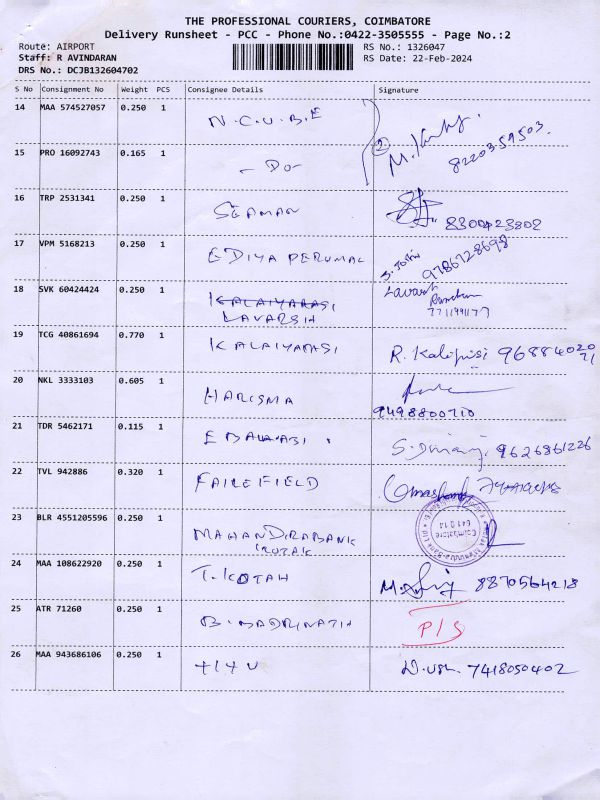 THE PROFESSIONAL COURIERS, COIMBATORE
Delivery Runsheet - PCC - Phone No.:0422-3505555 - Page No.:2
Route: AIRPORT RS No.: 1326047
Staff: R AVINDARAN RS Date: 22-Feb-2024
DRS No.: DCJB132604702
S No Consignment No Weight PCS Consignee Details Signature
14 MAA 574527057 0.250 1 N.C.U.B.E
2
15 PRO 16092743 0.165 1 - Do - 82203 59503
16 TRP 2531341 0.250 1 SEAMAN 8300423802
17 VPM 5168213 0.250 1 EDIYA PERUMAL 9786728698
18 SVK 60424424 0.250 1 KALAIYARASI
LAVARSH
19 TCG 40861694 0.770 1 KALAIYARASI R. 9688402071
20 NKL 3333103 0.605 1 HARISMA 9498800710
21 TDR 5462171 0.115 1 9626861226
22 TVL 942886 0.320 1 FAIREFIELD
23 BLR 4551205596 0.250 1 MAHANDRABANK
KOTAK
Coimbatore
24 MAA 108622920 0.250 1 T. KOTAH 8870564218
25 ATR 71260 0.250 1 B. MADRINATH P/S
26 MAA 943686106 0.250 1 7418050402